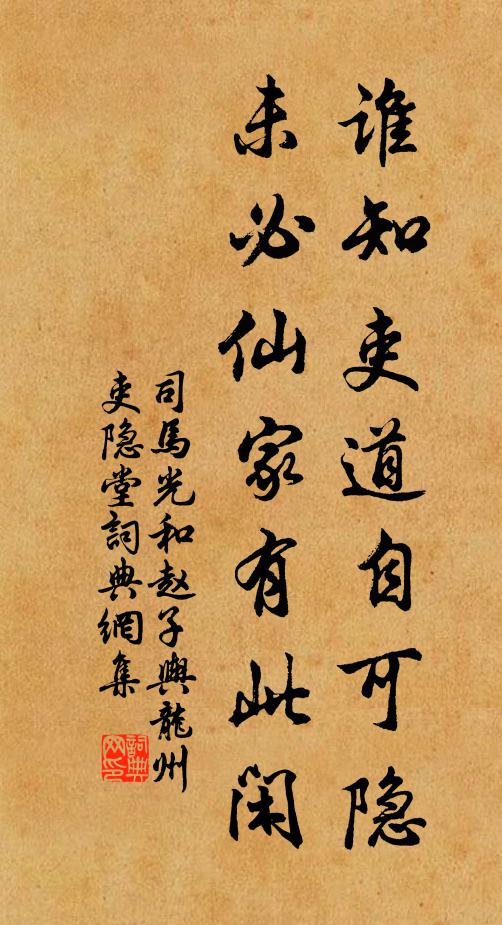 谁知吏道自可隐
未必仙家有此闲
司馬光和赵子輿龍州
吏隐堂詞典網集
詞典网印